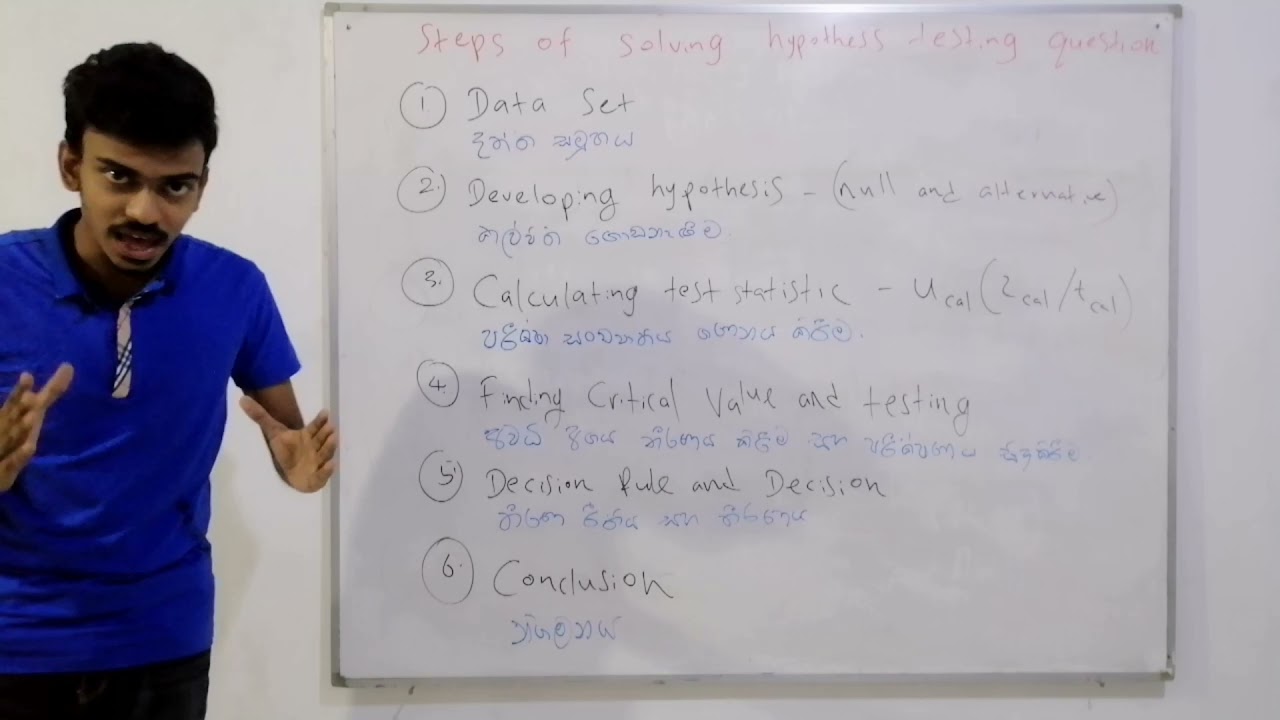 Steps of solving hypothess testing question
1. Data Set
දත්ත සමූහය
2. Developing hypothesis - (null and alternative)
කල්පිත ගොඩනැගීම.
3. Calculating test statistic - Ucal (Zcal/tcal)
පරීක්ෂා සංඛ්‍යාතිය ගණනය කිරීම.
4. Finding Critical Value and testing
අවධි අගය තීරණය කිරීම සහ පරීක්ෂණය සිදුකිරීම
5. Decision Rule and Decision
තීරණ රීතිය සහ තීරණය
6. Conclusion
නිගමනය